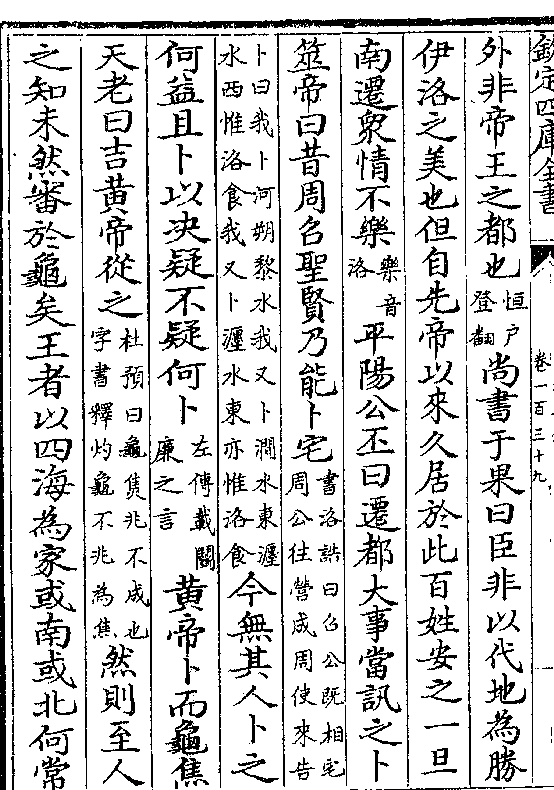 欽定四庫全書
卷一百三十九
外非帝王之都也恒户登翻尚書于果曰臣非以代地為勝
伊洛之美也但自先帝以來久居於此百姓安之一旦
南遷衆情不樂樂音洛平陽公丕曰遷都大事當訊之卜
筮帝曰昔周召聖賢乃能卜宅書洛誥曰召公既相宅周公往營成周使來告
卜曰我卜河朔黎水我又卜澗水東瀍水西惟洛食我又卜瀍水東亦惟洛食今無其人卜之
何益且卜以决疑不疑何卜左傳載鬭廉之言黄帝卜而龜焦
天老曰吉黄帝從之杜預曰龜焦兆不成也字書釋灼龜不兆為焦然則至人
之知未然審於龜矣王者以四海為家或南或北何常